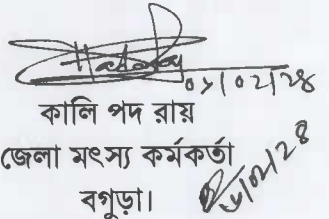 ০১/০২/২৪
কালি পদ রায়
জেলা মৎস্য কর্মকর্তা
বগুড়া।